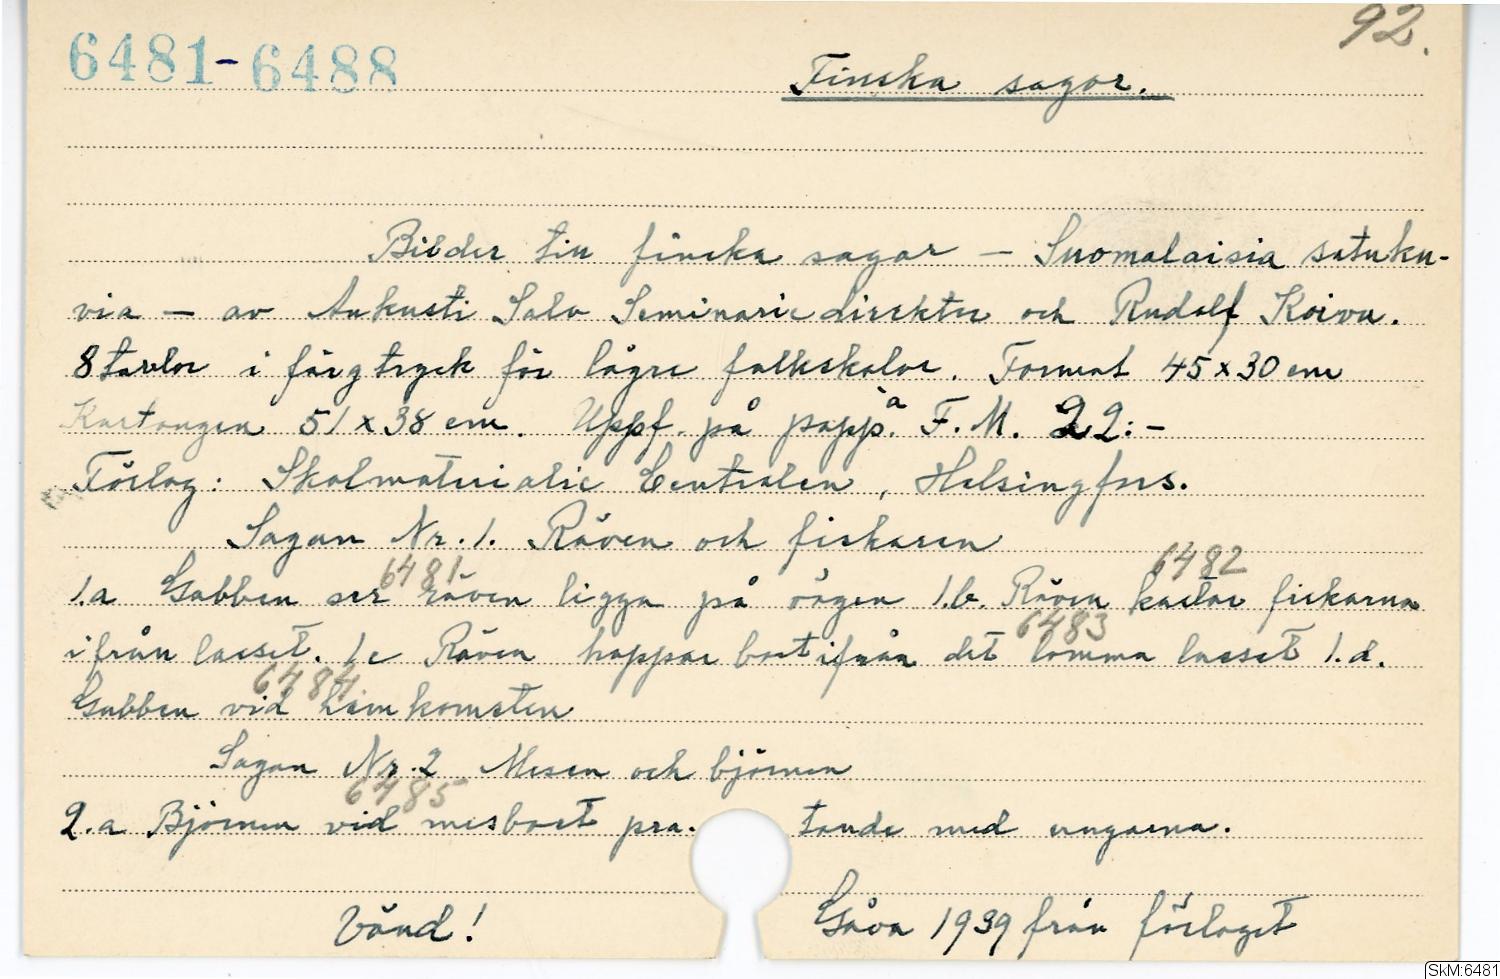 92.
6481-6488
Finska sagor.
Bilder till finska sagor - Suomalaisia satuku-
via - av Aukusti Salo Seminariedirektör och Rudolf Koivu.
8 tavlor i färgtryck för lägre folkskolor. Format 45 x 30 cm
Kartongen 51 x 38 cm. Uppf. på papp à F.M. 22:-
Förlag: Skolmaterialie Centralen, Helsingfors.
Sagan Nr. 1. Räven och fiskaren
6481 6482
1.a Gubben ser räven ligga på vägen 1.b. Räven kastar fiskarna
6483
ifrån lasset. 1c Räven hoppar bort ifrån det tomma lasset 1.d.
6484
Gubben vid hemkomsten
Sagan Nr. 2 Mesen och björnen
6485
2.a Björnen vid mesboet pra- tande med ungarna.
Vänd! Gåva 1939 från förlaget
SkM:6481